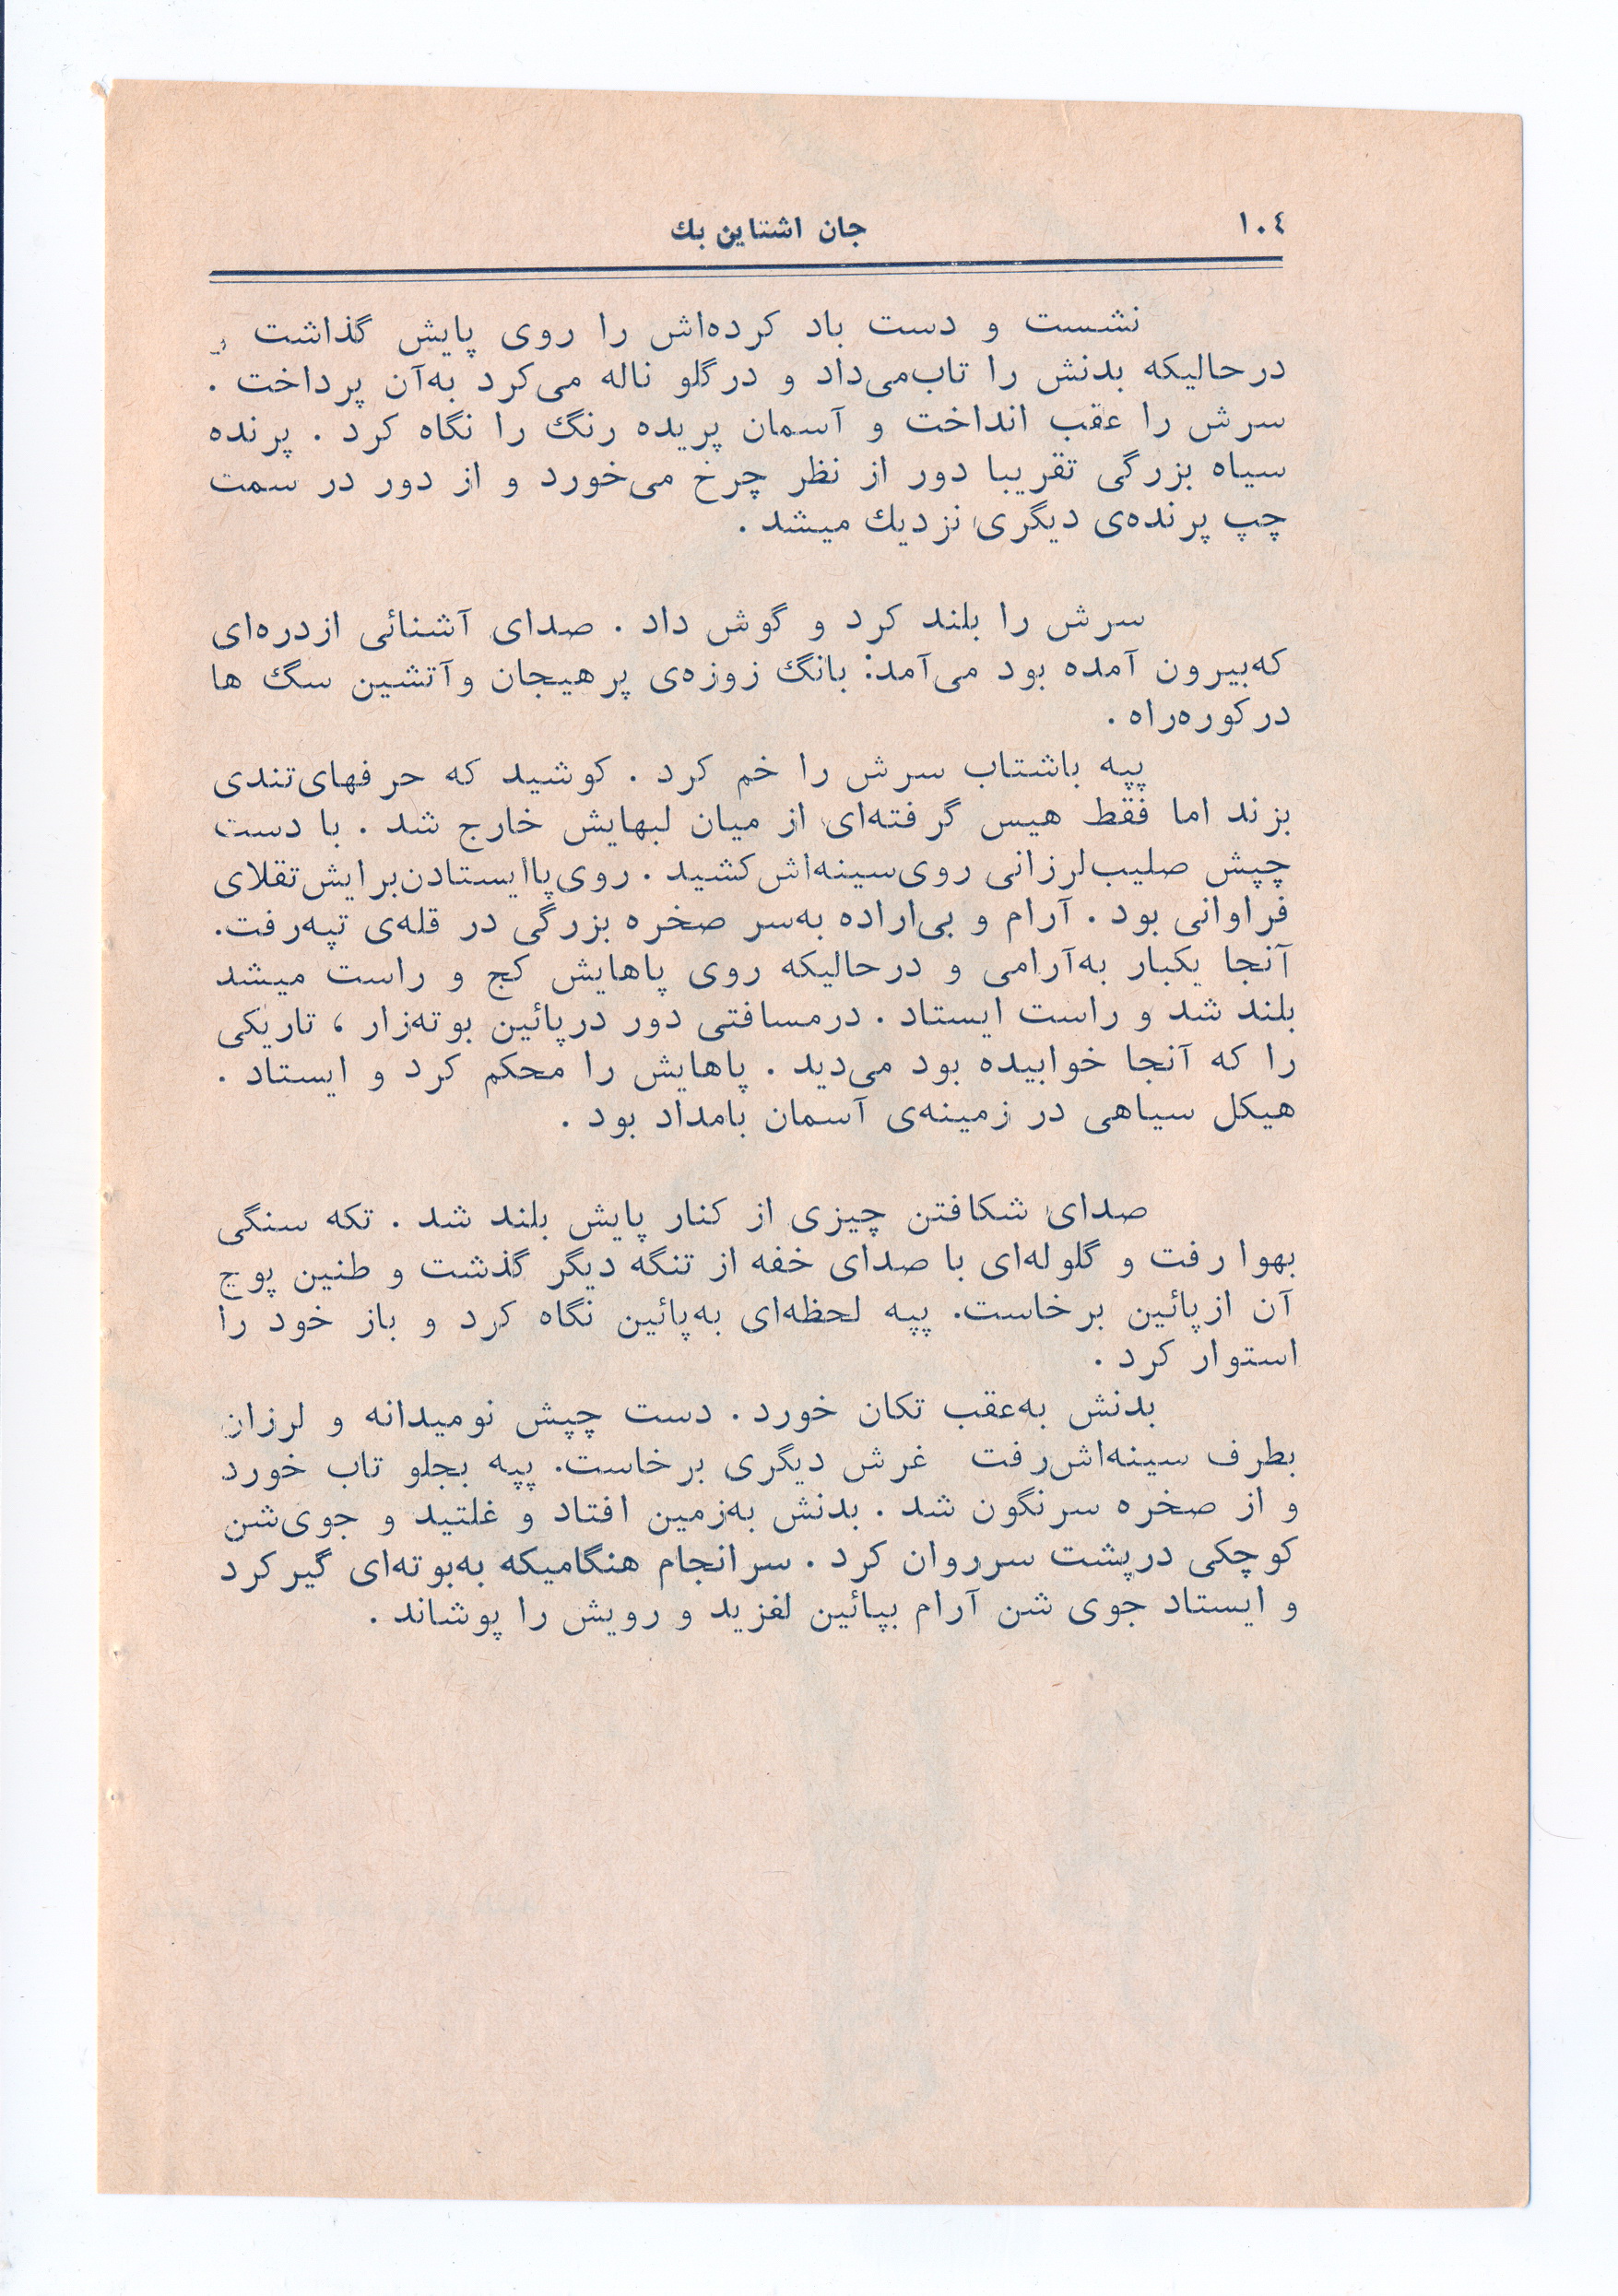 ١٠٤
جان اشتاین بك
نشست و دست باد کرده‌اش را روی پایش گذاشت و
درحالیکه بدنش را تاب‌می‌داد و درگلو ناله می‌کرد به‌آن پرداخت .
سرش را عقب انداخت و آسمان پریده رنگ را نگاه کرد . پرنده
سیاه بزرگی تقریبا دور از نظر چرخ می‌خورد و از دور در سمت
چپ پرنده‌ی دیگری نزدیك میشد .
سرش را بلند کرد و گوش داد . صدای آشنائی ازدره‌ای
که‌بیرون آمده بود می‌آمد: بانگ زوزه‌ی پرهیجان وآتشین سگ ها
درکوره‌راه .
پپه باشتاب سرش را خم کرد . کوشید که حرفهای‌تندی
بزند اما فقط هیس گرفته‌ای از میان لبهایش خارج شد . با دست
چپش صلیب‌لرزانی روی‌سینه‌اش‌کشید . روی‌پاایستادن‌برایش‌تقلای
فراوانی بود . آرام و بی‌اراده به‌سر صخره بزرگی در قله‌ی تپه‌رفت.
آنجا یکبار به‌آرامی و درحالیکه روی پاهایش کج و راست میشد
بلند شد و راست ایستاد . درمسافتی دور درپائین بوته‌زار ، تاریکی
را که آنجا خوابیده بود می‌دید . پاهایش را محکم کرد و ایستاد .
هیکل سیاهی در زمینه‌ی آسمان بامداد بود .
صدای شکافتن چیزی از کنار پایش بلند شد . تکه سنگی
بهوا رفت و گلوله‌ای با صدای خفه از تنگه دیگر گذشت و طنین پوچ
آن ازپائین برخاست. پپه لحظه‌ای به‌پائین نگاه کرد و باز خود را
استوار کرد .
بدنش به‌عقب تکان خورد . دست چپش نومیدانه و لرزان
بطرف سینه‌اش‌رفت غرش دیگری برخاست. پپه بجلو تاب خورد
و از صخره سرنگون شد . بدنش به‌زمین افتاد و غلتید و جوی‌شن
کوچکی درپشت سرروان کرد . سرانجام هنگامیکه به‌بوته‌ای گیرکرد
و ایستاد جوی شن آرام بپائین لغزید و رویش را پوشاند .